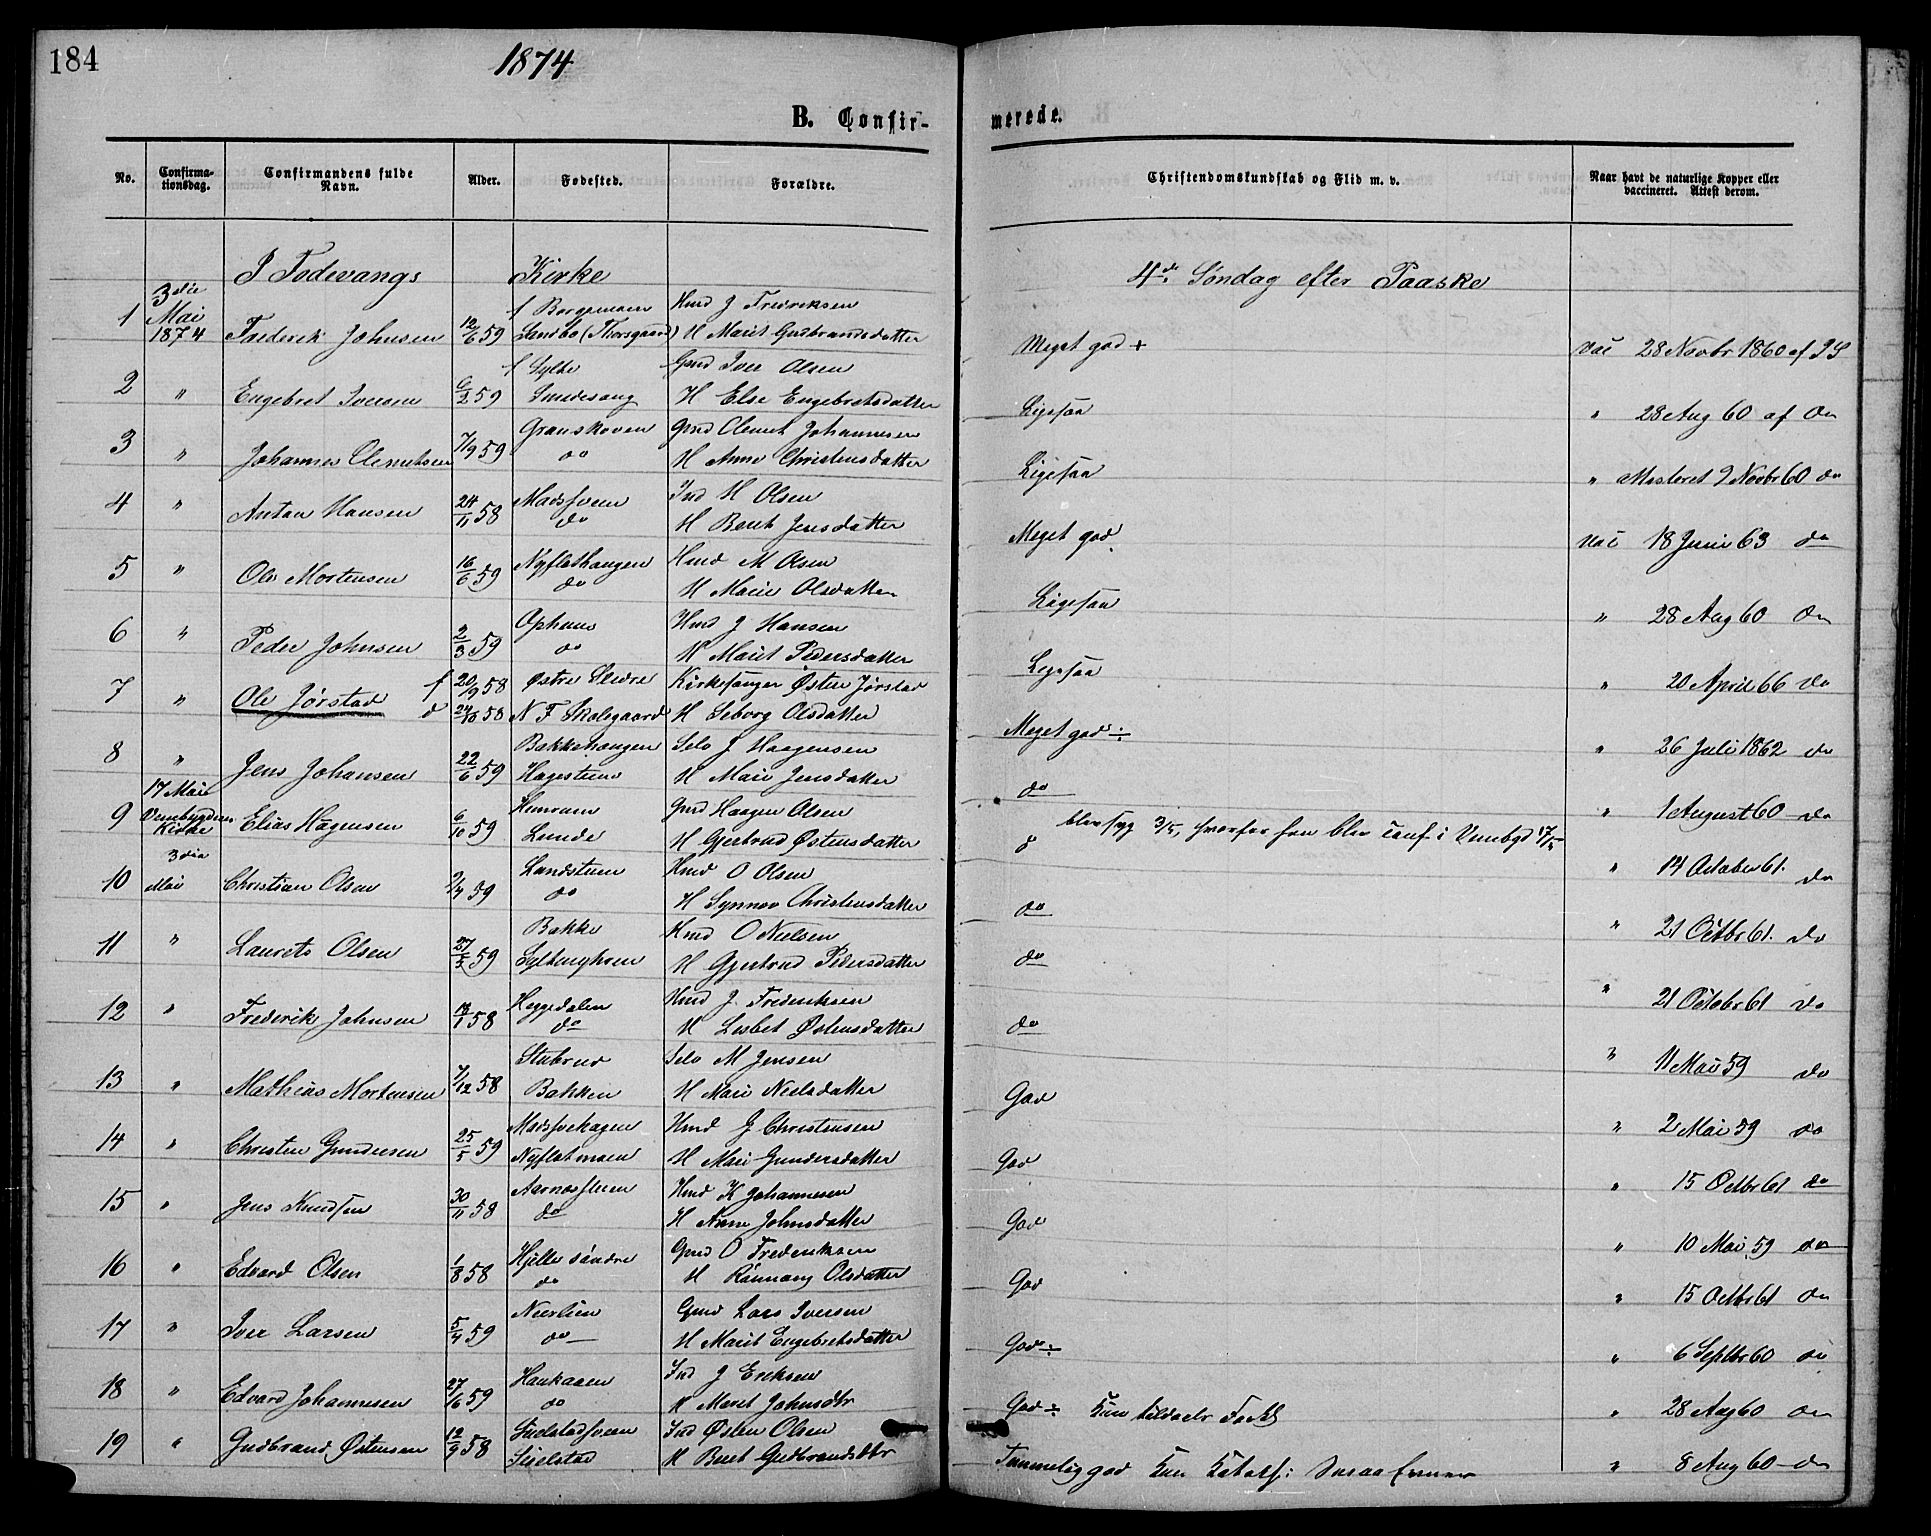 184
1874
B. Confir-
merede.
No.
Confirma-
tionsdag.
Confirmandens fulde
Navn.
Alder.
Fødested.
Forældre.
Christendomskundskab og Flid m. v.
Naar havt de naturlige Kopper eller
vaccineret. Attest derom.
I Fodevangs Kirke
4de Søndag efter Paaske
3die Mai 1874
1 Frederik Johnsen 12/6 59 f Borgemoen Hmd J Fredriksen
Sandbo (Thorsgaard) H Marit Gudbrandsdatter
Meget god + vac 28 Novbr 1860 af
2 " Engebret Iversen 6/2 59 f Sylte Gmd Iver Olsen
Smedesang H Else Engebretsdatter
Ligesaa " 28 Aug 60 af do
3 " Johannes Clemetsen 7/9 59 Granskoven Gmd Clemet Johannesen
do H Anne Christensdatter
Ligesaa " Attesteret 9 Novbr 60 do
4 " Anton Hansen 24/11 58 Madssveen Ind H Olsen
do H Berit Jensdatter
Meget god vac 18 Juni 63 do
5 " Ole Mortensen 16/6 59 Nyflothaugen Hmd M Olsen
do H Marie Olsdatter
Ligesaa " 28 Aug 60 do
6 " Peder Johnsen 2/3 59 Ophuus Hmd J Hansen
do H Marit Pedersdatter
Ligesaa " 20 April 66 do
7 " Ole Jørstad f 20/9 58 Østre Slidre Kirkesanger Østen Jørstad
d 24/10 58 N F Skolegaard H Seborg Olsdatter
Meget god ÷ " 26 Juli 1862 do
8 " Jens Johansen 22/6 59 Bakkehaugen Selv J Haagensen
Hagestuen H Mari Jensdatter
do " 1 August 60 do
17 Mai Venebygdens Kirke
9 Elias Hagensen 6/10 59 Lunde Gmd Haagen Olsen
H Gjertrud Østensdatter
blev syg 3/5, hvorfor han blev conf. i Venebygd 17/5
" 14 October 61. do
3die Mai
10 Christian Olsen 59 Lundstuen Hmd O Olsen
do H Synnøv Christensdatter
do " 21 Octbr 61. do
11 " Laurets Olsen 27/5 59 Bakke Hmd O Nielsen
H Gjertrud Pedersdatter
do " 21 Octobr 61 do
12 " Frederik Johnsen 58 Heggedalen Hmd J. Frederiksen
do H Lisbet Østensdatter
do " 11 Mai 59 do
13 " Mathias Mortensen 7/12 58 Stubrud Selv M Jensen
Bakken H Mari Nielsdatter
God " 2 Mai 59 do
14 " Christen Gundersen 25/5 59 Madssvehagen Hmd G Christensen
Nyflotmoen H Mari Gundersdatter
God " 15 Octbr 61 do
15 " Jens Knudsen 30/11 58 Aarnæsfleen Hmd K Johannesen
do H Anne Johnsdatter
God " 10 Mai 59 do
16 " Edvard Olsen 1/8 58 Hjelle søndre Gmd O Frederiksen
do H Rønnaug Olsdatter
God " 15 Octbr 61 do
17 " Iver Larsen 5/4 59 Nerlien Gmd Lars Iversen
do H Marit Engebretsdatter
God ÷ " 6 Septbr 60 do
18 " Edvard Johannesen 27/6 59 Haukaaen Ind J Eriksen
do H Maret Johnsdtr
God ÷ Kun " 28 Aug 60 do
19 " Gudbrand Østensen 12/9 58 Sielstadsveen Ind Østen Olsen
Sielstad H Berit Gudbrandsdtr
Temmelig god Kun " 8 Aug 60 do